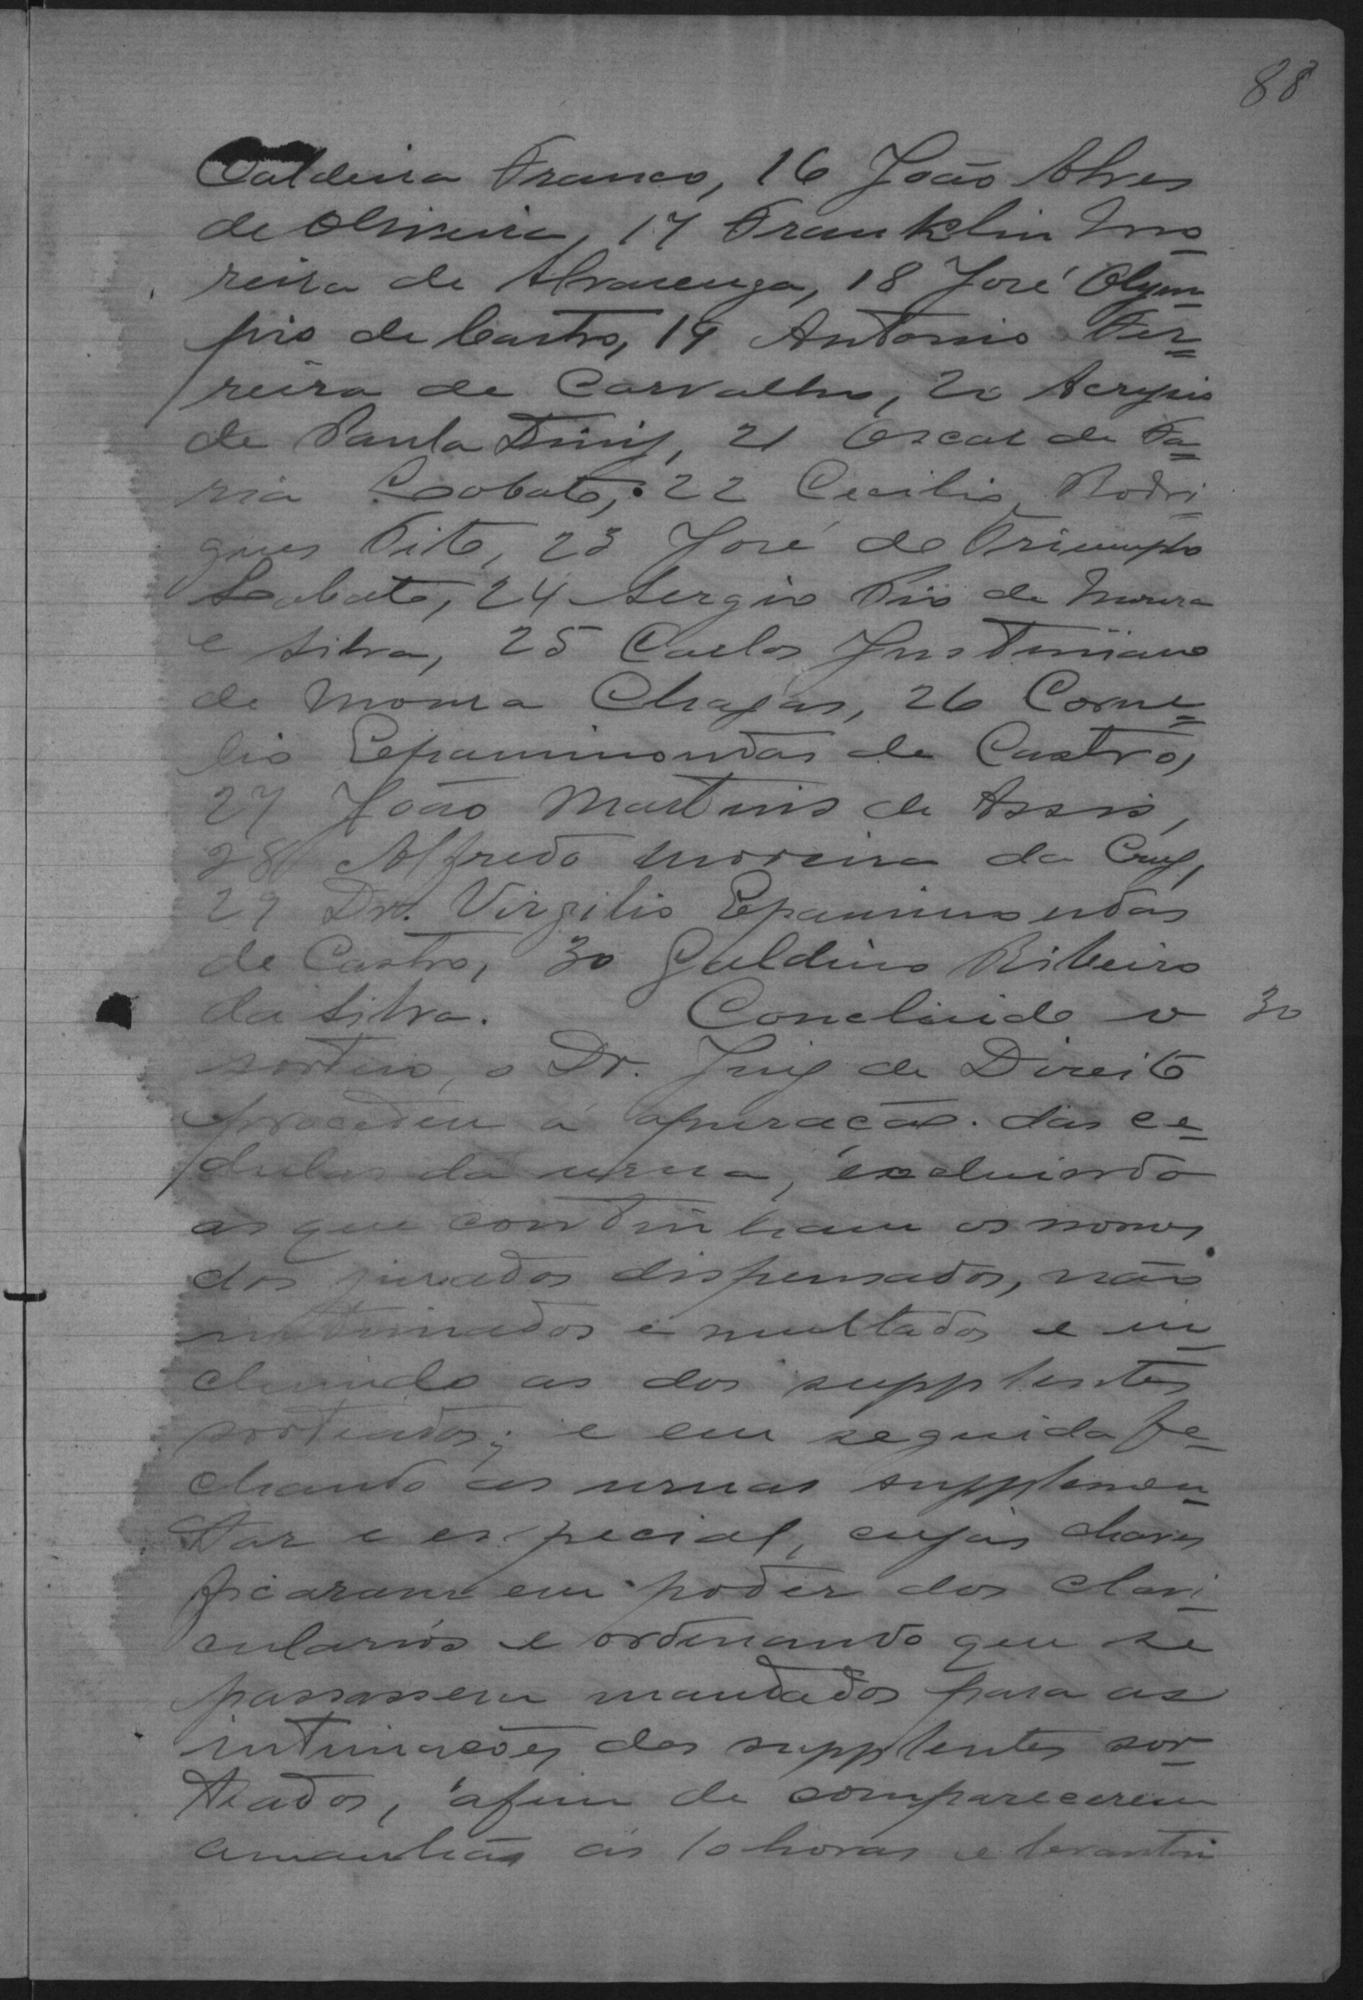 88
Caldeira Franco, 16 João Alves
de Oliveira, 17 Franklin Mo=
reira de Alvarenga, 18 José Olym=
pio de Castro, 19 Antonio Fer=
reira de Carvalho, 20 Acrysio
de Paula Diniz, 21 Oscar de Fa=
ria Lobato, 22 Cecilio Rodri-
gues Tito, 23 José do Triumpho
Lobato, 24 Sergio Pio de Moura
e Silva, 25 Carlos Justiniano
de Moura Chagas, 26 Corne=
lio Epaminondas de Castro,
27 João Martins de Assis,
28 Alfredo Moreira da Cruz,
29 Dr. Virgilio Epaminondas
de Castro, 30 Galdino Ribeiro
da Silva. Concluido o 30
sorteio, o Dr. Juiz de Direito
procedeu á apuração das ce-
dulas da urna, excluindo
as que continham os nomes
dos jurados dispensados, não
intimados e multados e in-
cluindo as dos supplentes
sorteados; e em seguida fe-
chando as urnas supplemen-
tar e especial, cujas chaves
ficaram em poder dos clavi-
cularios e ordenando que se
passassem mandados para as
intimações dos supplentes sor-
teados, afim de comparecerem
amanhã ás 10 horas e levantou